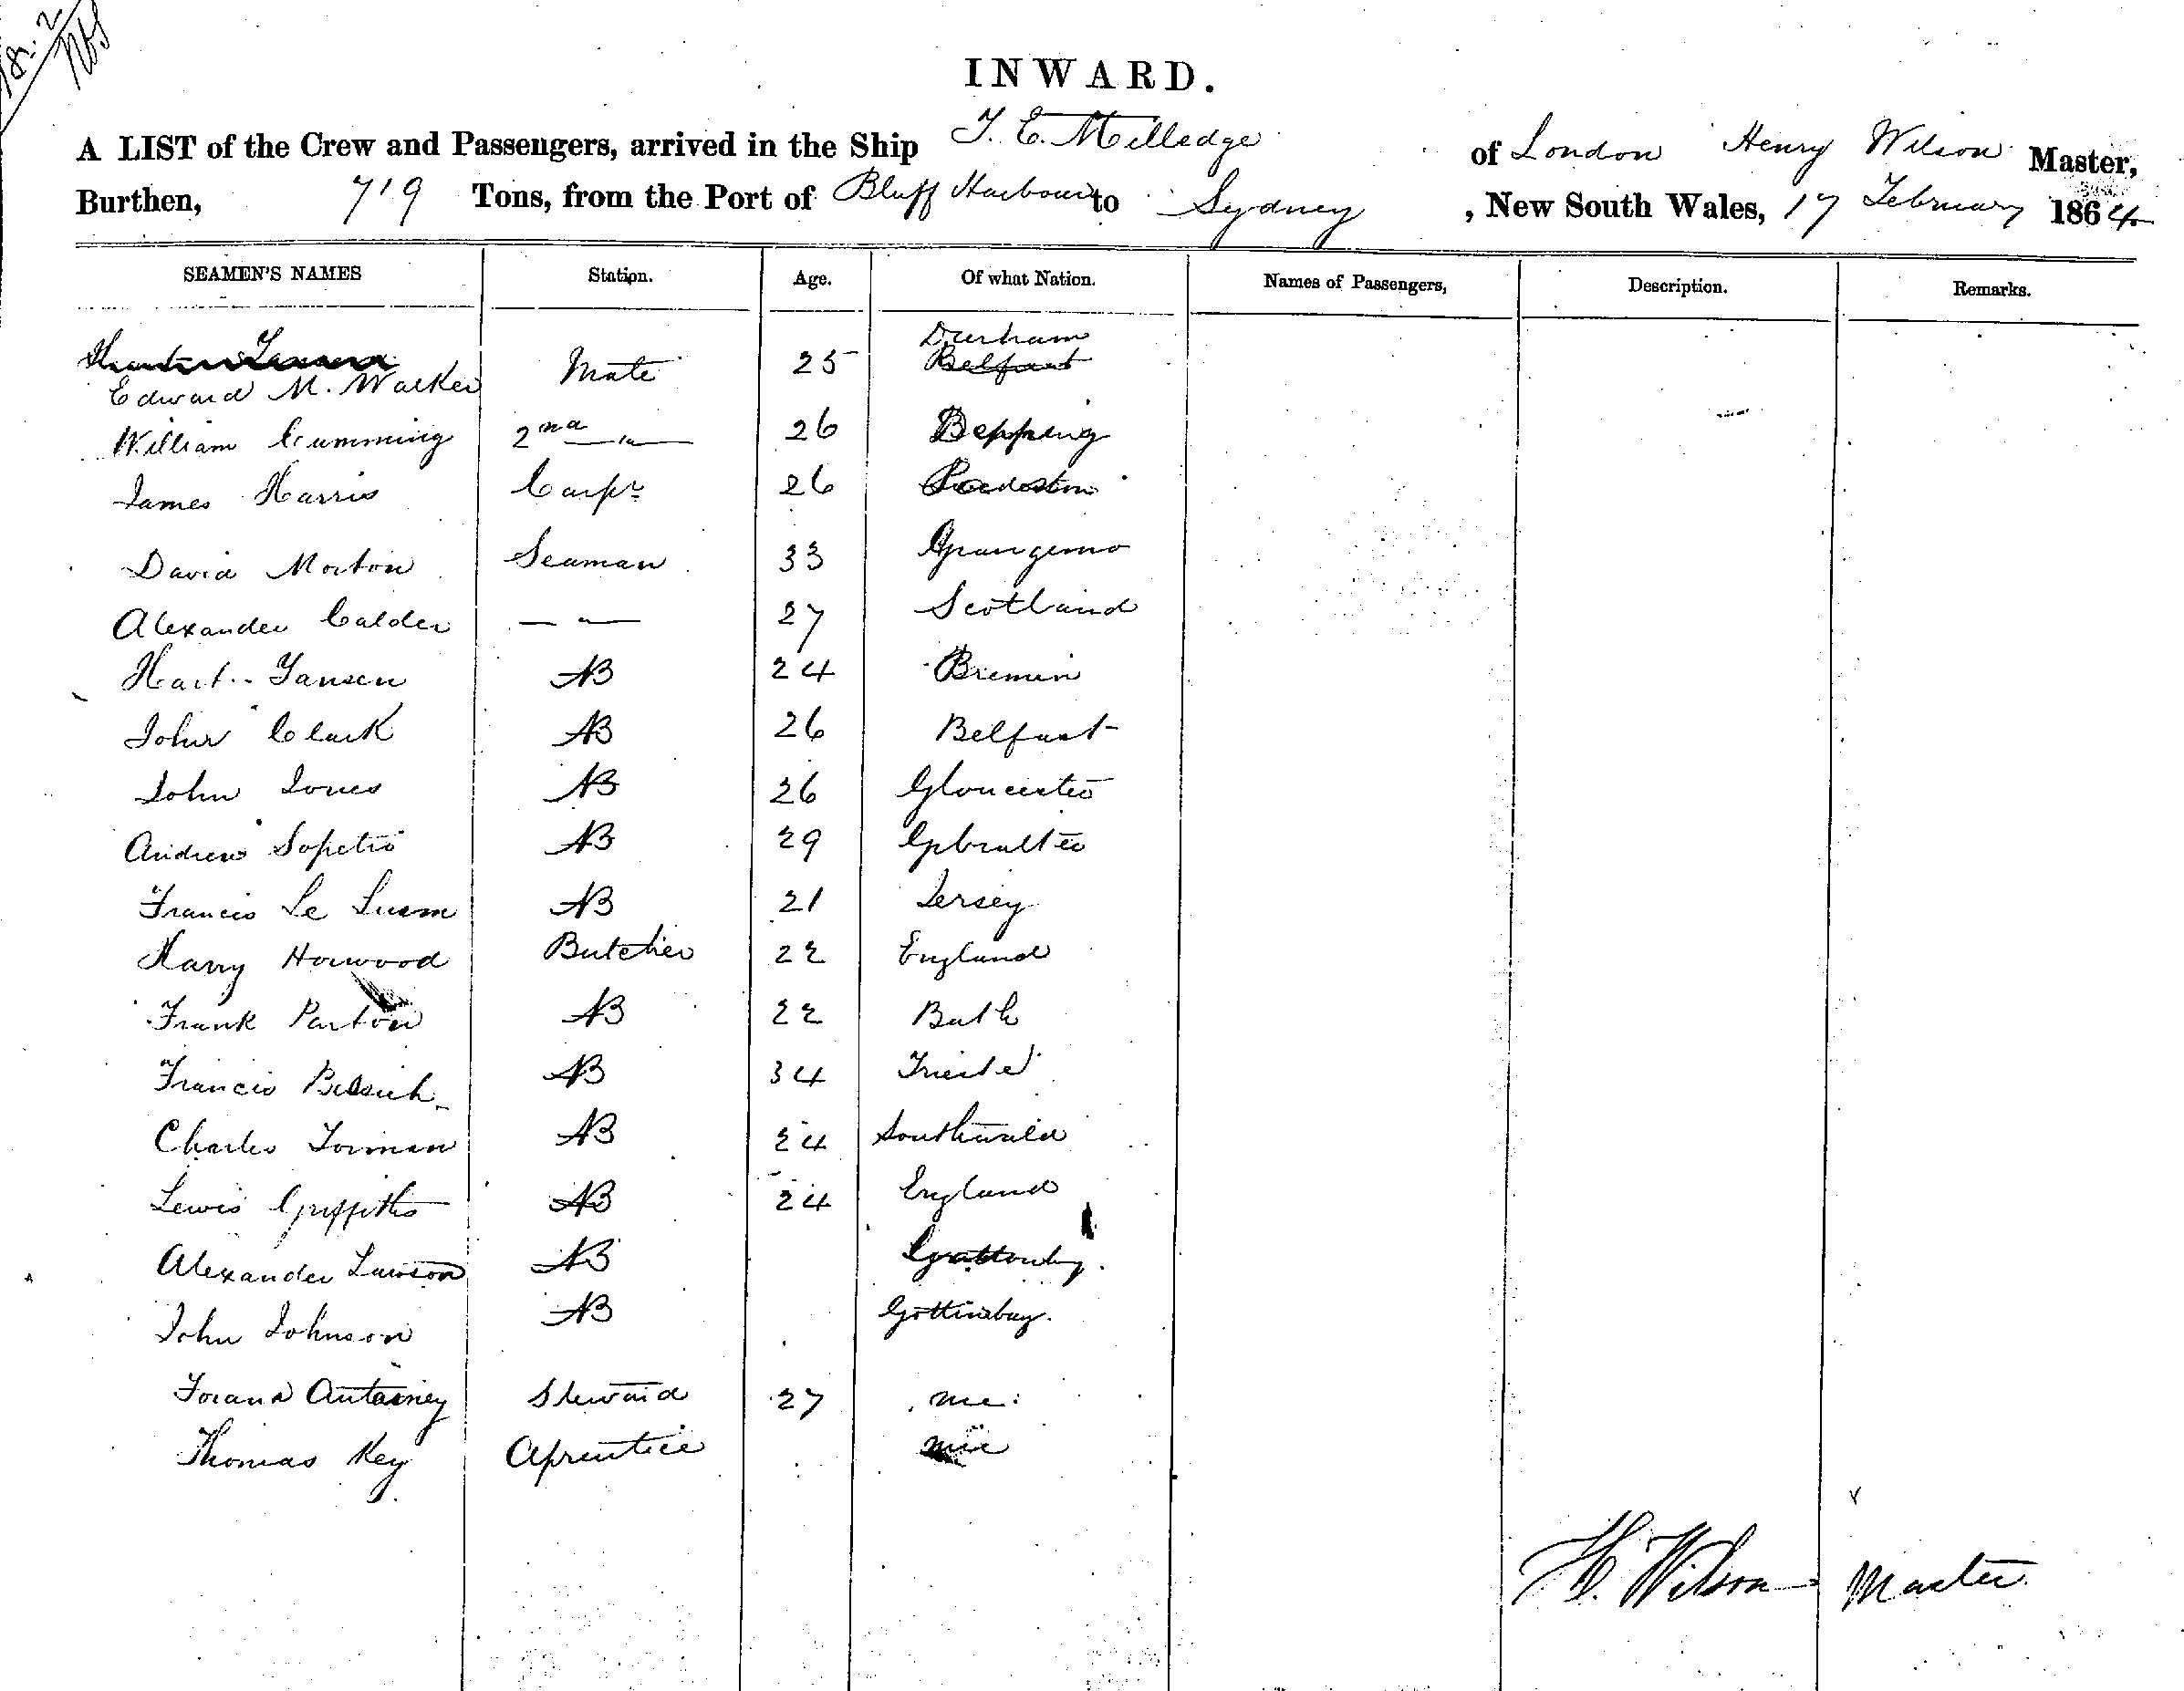 18. 2
INWARD.
A LIST of the Crew and Passengers, arrived in the Ship T. E. Milledge of London Henry Wilson Master,
Burthen, 719 Tons, from the Port of Bluff Harbour to Sydney, New South Wales, 17 February 1864
SEAMEN'S NAMES Station. Age. Of what Nation. Names of Passengers, Description. Remarks.
Durham
Belfast
Edward M. Walker Mate 25
William Cumming 2nd —"— 26 Depping
James Harris Carpr 26
David Morton Seaman 33 Grangemo
Alexander Calder — " — 27 Scotland
Hart. Jansen AB 24 Bremin
John Clark AB 26 Belfast
John Jones AB 26 Gloucester
Andrew Sopetro AB 29 Gibralter
Francis Le AB 21 Jersey
Harry Horwood Butcher 22 England
Frank Parton AB 22 Bath
Francis AB 34 Trieste
Charles AB 24 Southwald
Lewis Griffiths AB 24 England
Alexander Lawson AB
John Johnson AB Gottinburg.
Antainey Steward 27
Thomas Key Aprentice
H. Wilson Master